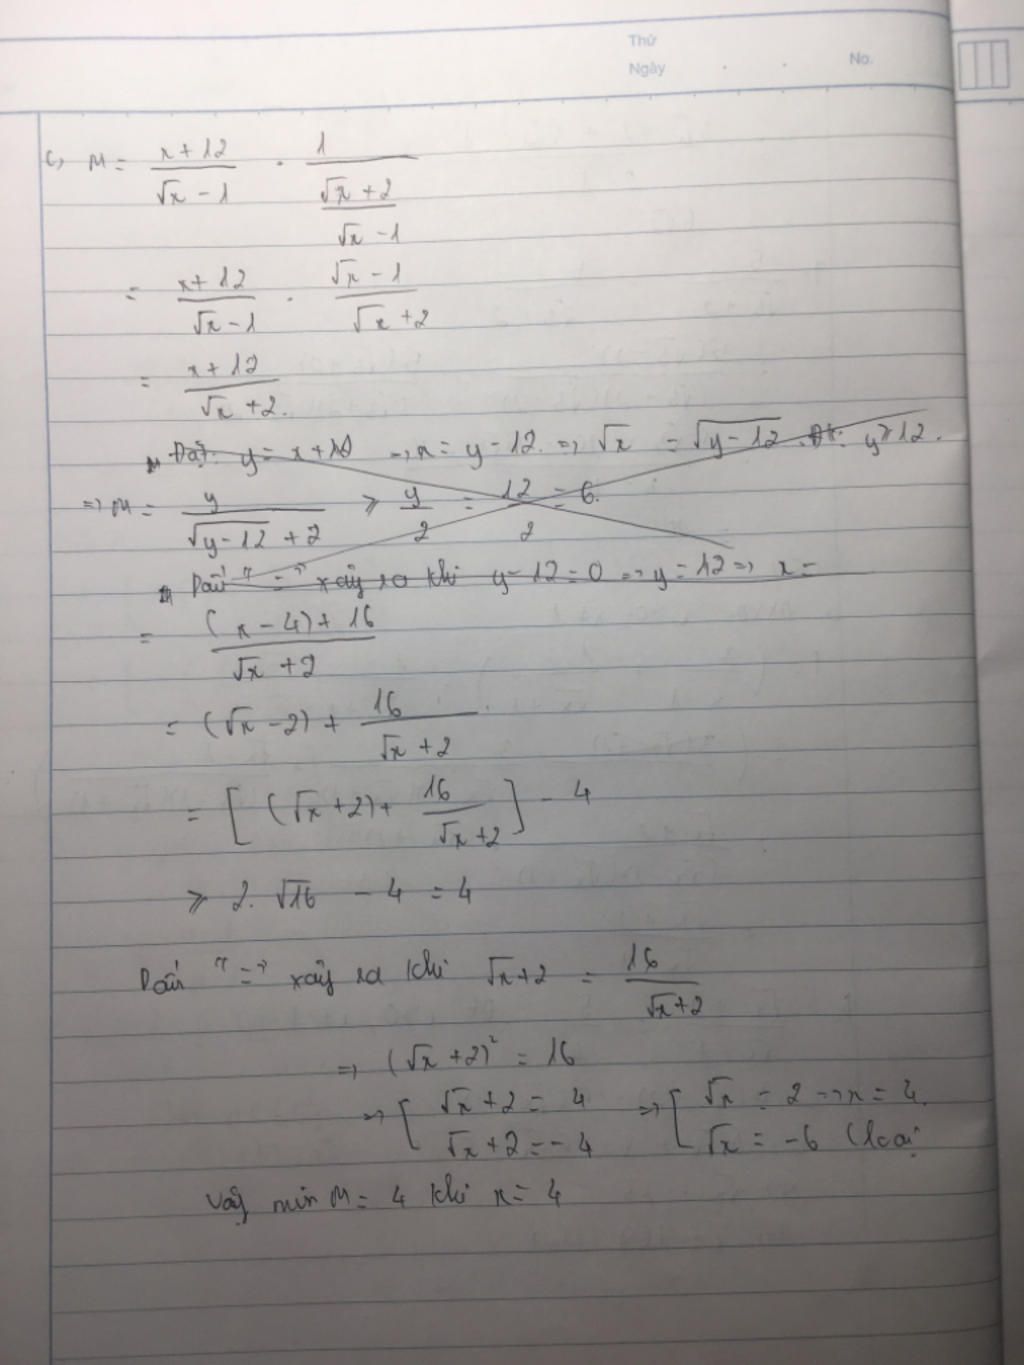 Thứ
Ngày . . No.
c, M = \frac{x+12}{\sqrt{x}-1} . \frac{1}{\frac{\sqrt{x}+2}{\sqrt{x}-1}}
= \frac{x+12}{\sqrt{x}-1} . \frac{\sqrt{x}-1}{\sqrt{x}+2}
= \frac{x+12}{\sqrt{x}+2}.
Đặt: y = x+12 => x = y-12. => \sqrt{x} = \sqrt{y-12} . Đk: y ≥ 12.
=> M = \frac{y}{\sqrt{y-12}+2} ≥ \frac{y}{2} = \frac{12}{2} = 6.
Dấu "=" xảy ra khi y-12=0 => y=12 => x=
= \frac{(x-4)+16}{\sqrt{x}+2}
= (\sqrt{x}-2) + \frac{16}{\sqrt{x}+2}
= [(\sqrt{x}+2) + \frac{16}{\sqrt{x}+2}] - 4
≥ 2. \sqrt{16} - 4 = 4
Dấu "=" xảy ra khi \sqrt{x}+2 = \frac{16}{\sqrt{x}+2}
=> (\sqrt{x}+2)^2 = 16
=> [ \sqrt{x}+2 = 4 => [ \sqrt{x} = 2 => x = 4.
\sqrt{x}+2 = -4 \sqrt{x} = -6 (loại
Vậy min M = 4 khi x = 4